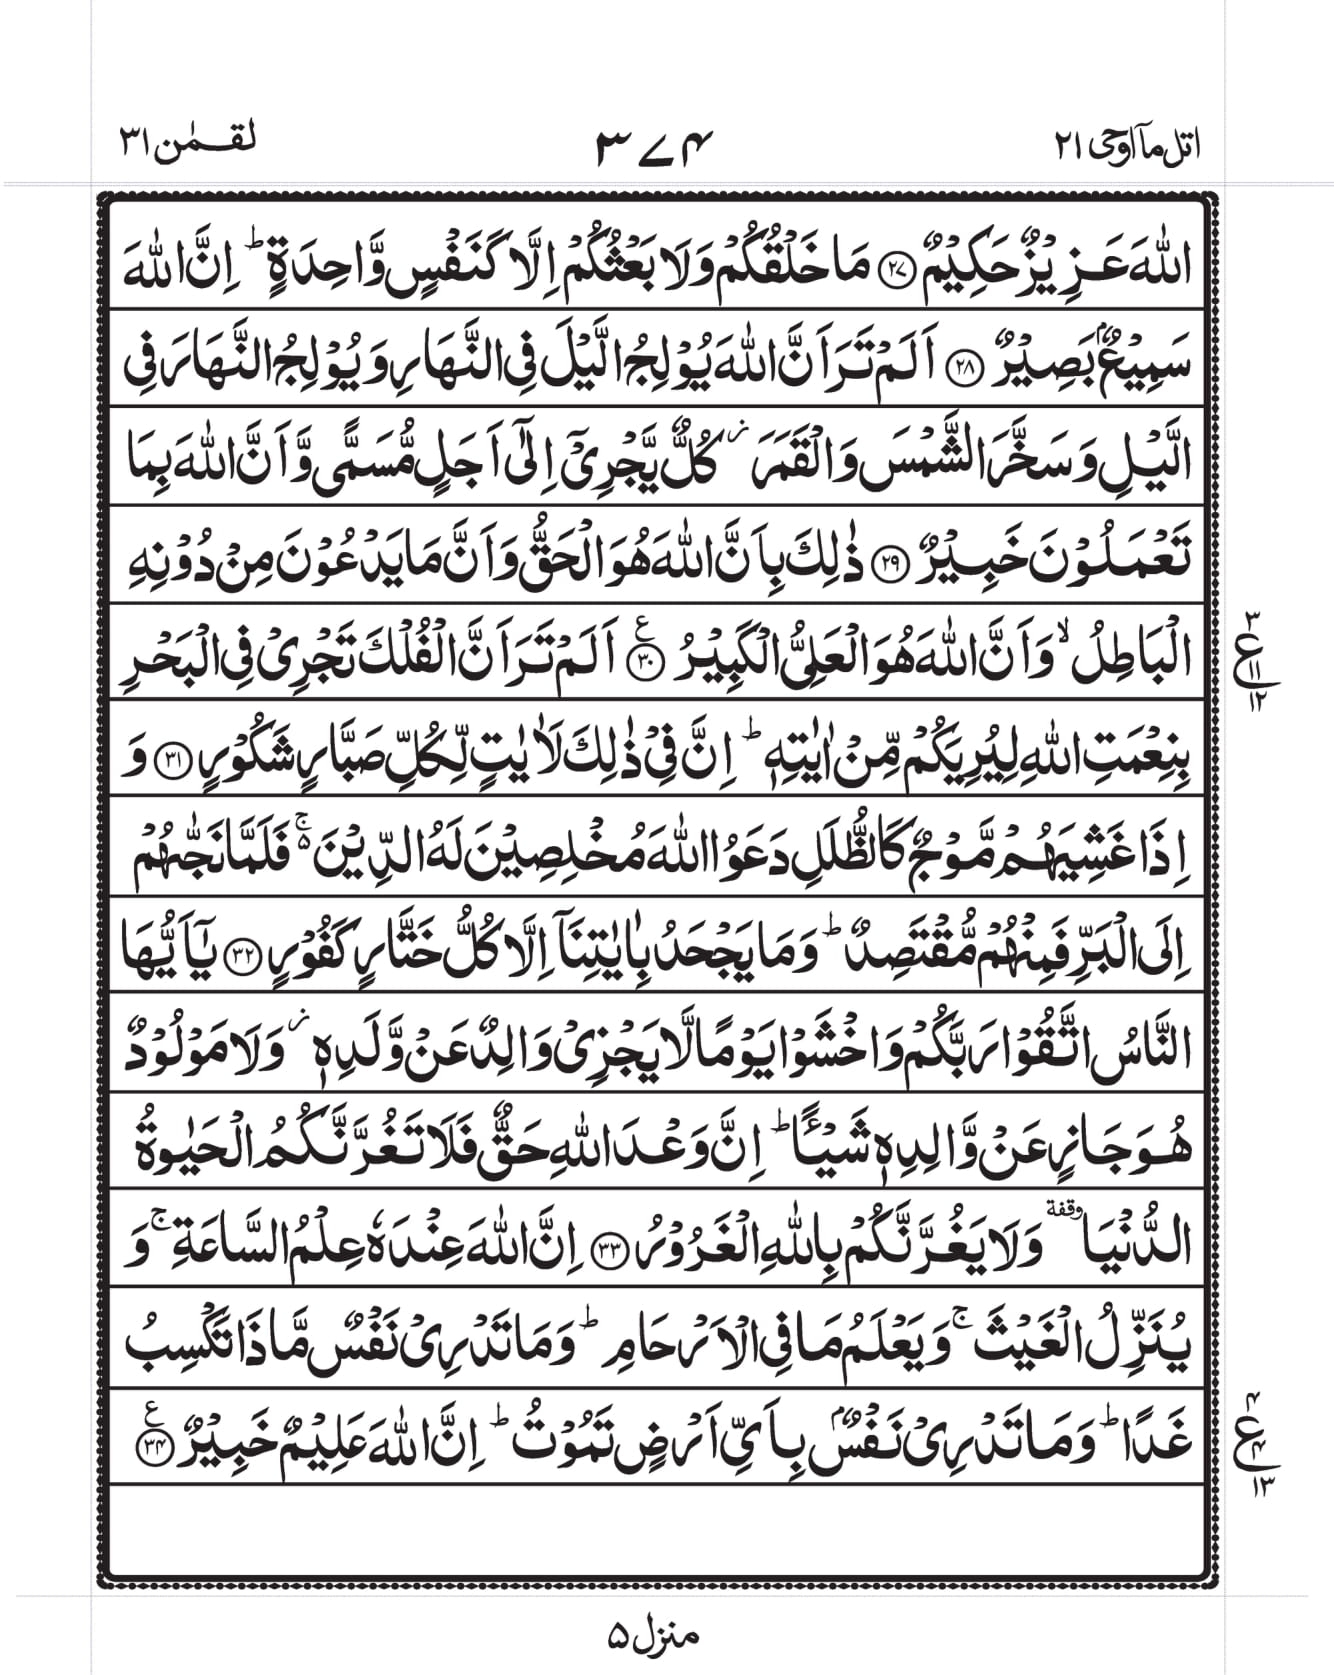 اتل ماۤ اوحی ۲۱
۳۷۴
لقمٰن ۳۱
اللّٰهَ عَزِيْزٌ حَكِيْمٌ ۝۲۷ مَا خَلْقُكُمْ وَلَا بَعْثُكُمْ اِلَّا كَنَفْسٍ وَّاحِدَةٍ ؕ اِنَّ اللّٰهَ
سَمِيْعٌۢ بَصِيْرٌ ۝۲۸ اَلَمْ تَرَ اَنَّ اللّٰهَ يُوْلِجُ الَّيْلَ فِى النَّهَارِ وَيُوْلِجُ النَّهَارَ فِى
الَّيْلِ وَسَخَّرَ الشَّمْسَ وَالْقَمَرَ ؗ كُلٌّ يَّجْرِىْۤ اِلٰٓى اَجَلٍ مُّسَمًّى وَّاَنَّ اللّٰهَ بِمَا
تَعْمَلُوْنَ خَبِيْرٌ ۝۲۹ ذٰلِكَ بِاَنَّ اللّٰهَ هُوَ الْحَقُّ وَاَنَّ مَا يَدْعُوْنَ مِنْ دُوْنِهِ
الْبَاطِلُ ۙ وَاَنَّ اللّٰهَ هُوَ الْعَلِىُّ الْكَبِيْرُ ۝۳۰ ع اَلَمْ تَرَ اَنَّ الْفُلْكَ تَجْرِىْ فِى الْبَحْرِ
۳ ع ۱۱ ۱۲
بِنِعْمَتِ اللّٰهِ لِيُرِيَكُمْ مِّنْ اٰيٰتِهٖ ؕ اِنَّ فِىْ ذٰلِكَ لَاٰيٰتٍ لِّكُلِّ صَبَّارٍ شَكُوْرٍ ۝۳۱ وَ
اِذَا غَشِيَهُمْ مَّوْجٌ كَالظُّلَلِ دَعَوُا اللّٰهَ مُخْلِصِيْنَ لَهُ الدِّيْنَ ۚ۵ فَلَمَّا نَجّٰىهُمْ
اِلَى الْبَرِّ فَمِنْهُمْ مُّقْتَصِدٌ ؕ وَمَا يَجْحَدُ بِاٰيٰتِنَاۤ اِلَّا كُلُّ خَتَّارٍ كَفُوْرٍ ۝۳۲ يٰۤاَيُّهَا
النَّاسُ اتَّقُوْا رَبَّكُمْ وَاخْشَوْا يَوْمًا لَّا يَجْزِىْ وَالِدٌ عَنْ وَّلَدِهٖ ؗ وَلَا مَوْلُوْدٌ
هُوَ جَازٍ عَنْ وَّالِدِهٖ شَيْـًٔا ؕ اِنَّ وَعْدَ اللّٰهِ حَقٌّ فَلَا تَغُرَّنَّكُمُ الْحَيٰوةُ
الدُّنْيَا وقفة وَلَا يَغُرَّنَّكُمْ بِاللّٰهِ الْغَرُوْرُ ۝۳۳ اِنَّ اللّٰهَ عِنْدَهٗ عِلْمُ السَّاعَةِ ۚ وَ
يُنَزِّلُ الْغَيْثَ ۚ وَيَعْلَمُ مَا فِى الْاَرْحَامِ ؕ وَمَا تَدْرِىْ نَفْسٌ مَّاذَا تَكْسِبُ
غَدًا ؕ وَمَا تَدْرِىْ نَفْسٌۢ بِاَىِّ اَرْضٍ تَمُوْتُ ؕ اِنَّ اللّٰهَ عَلِيْمٌ خَبِيْرٌ ۝۳۴ ع
۴ ع ۴ ۱۳
منزل ۵